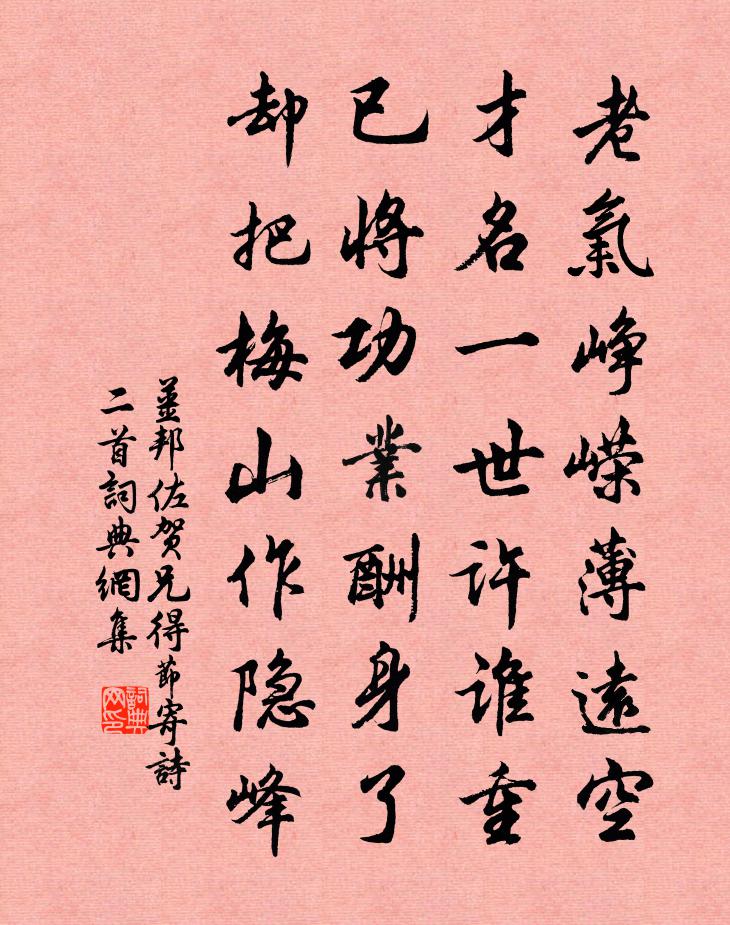 老氣崢嶸薄遠空
才名一世許誰重
已將功業酬身了
却把梅山作隐峰
蓋邦佐賀兄得節寄詩
二首詞典網集
詞典网印